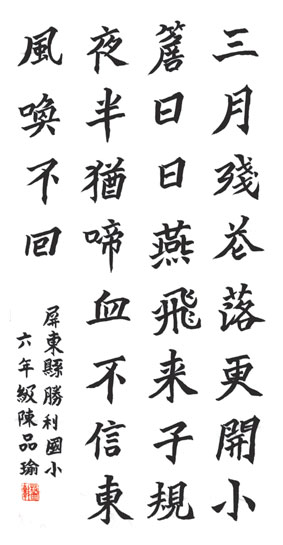 三月殘花落更開小
簷日日燕飛来子規
夜半猶啼血不信東
風喚不回
屏東縣勝利國小
六年級陳品瑜